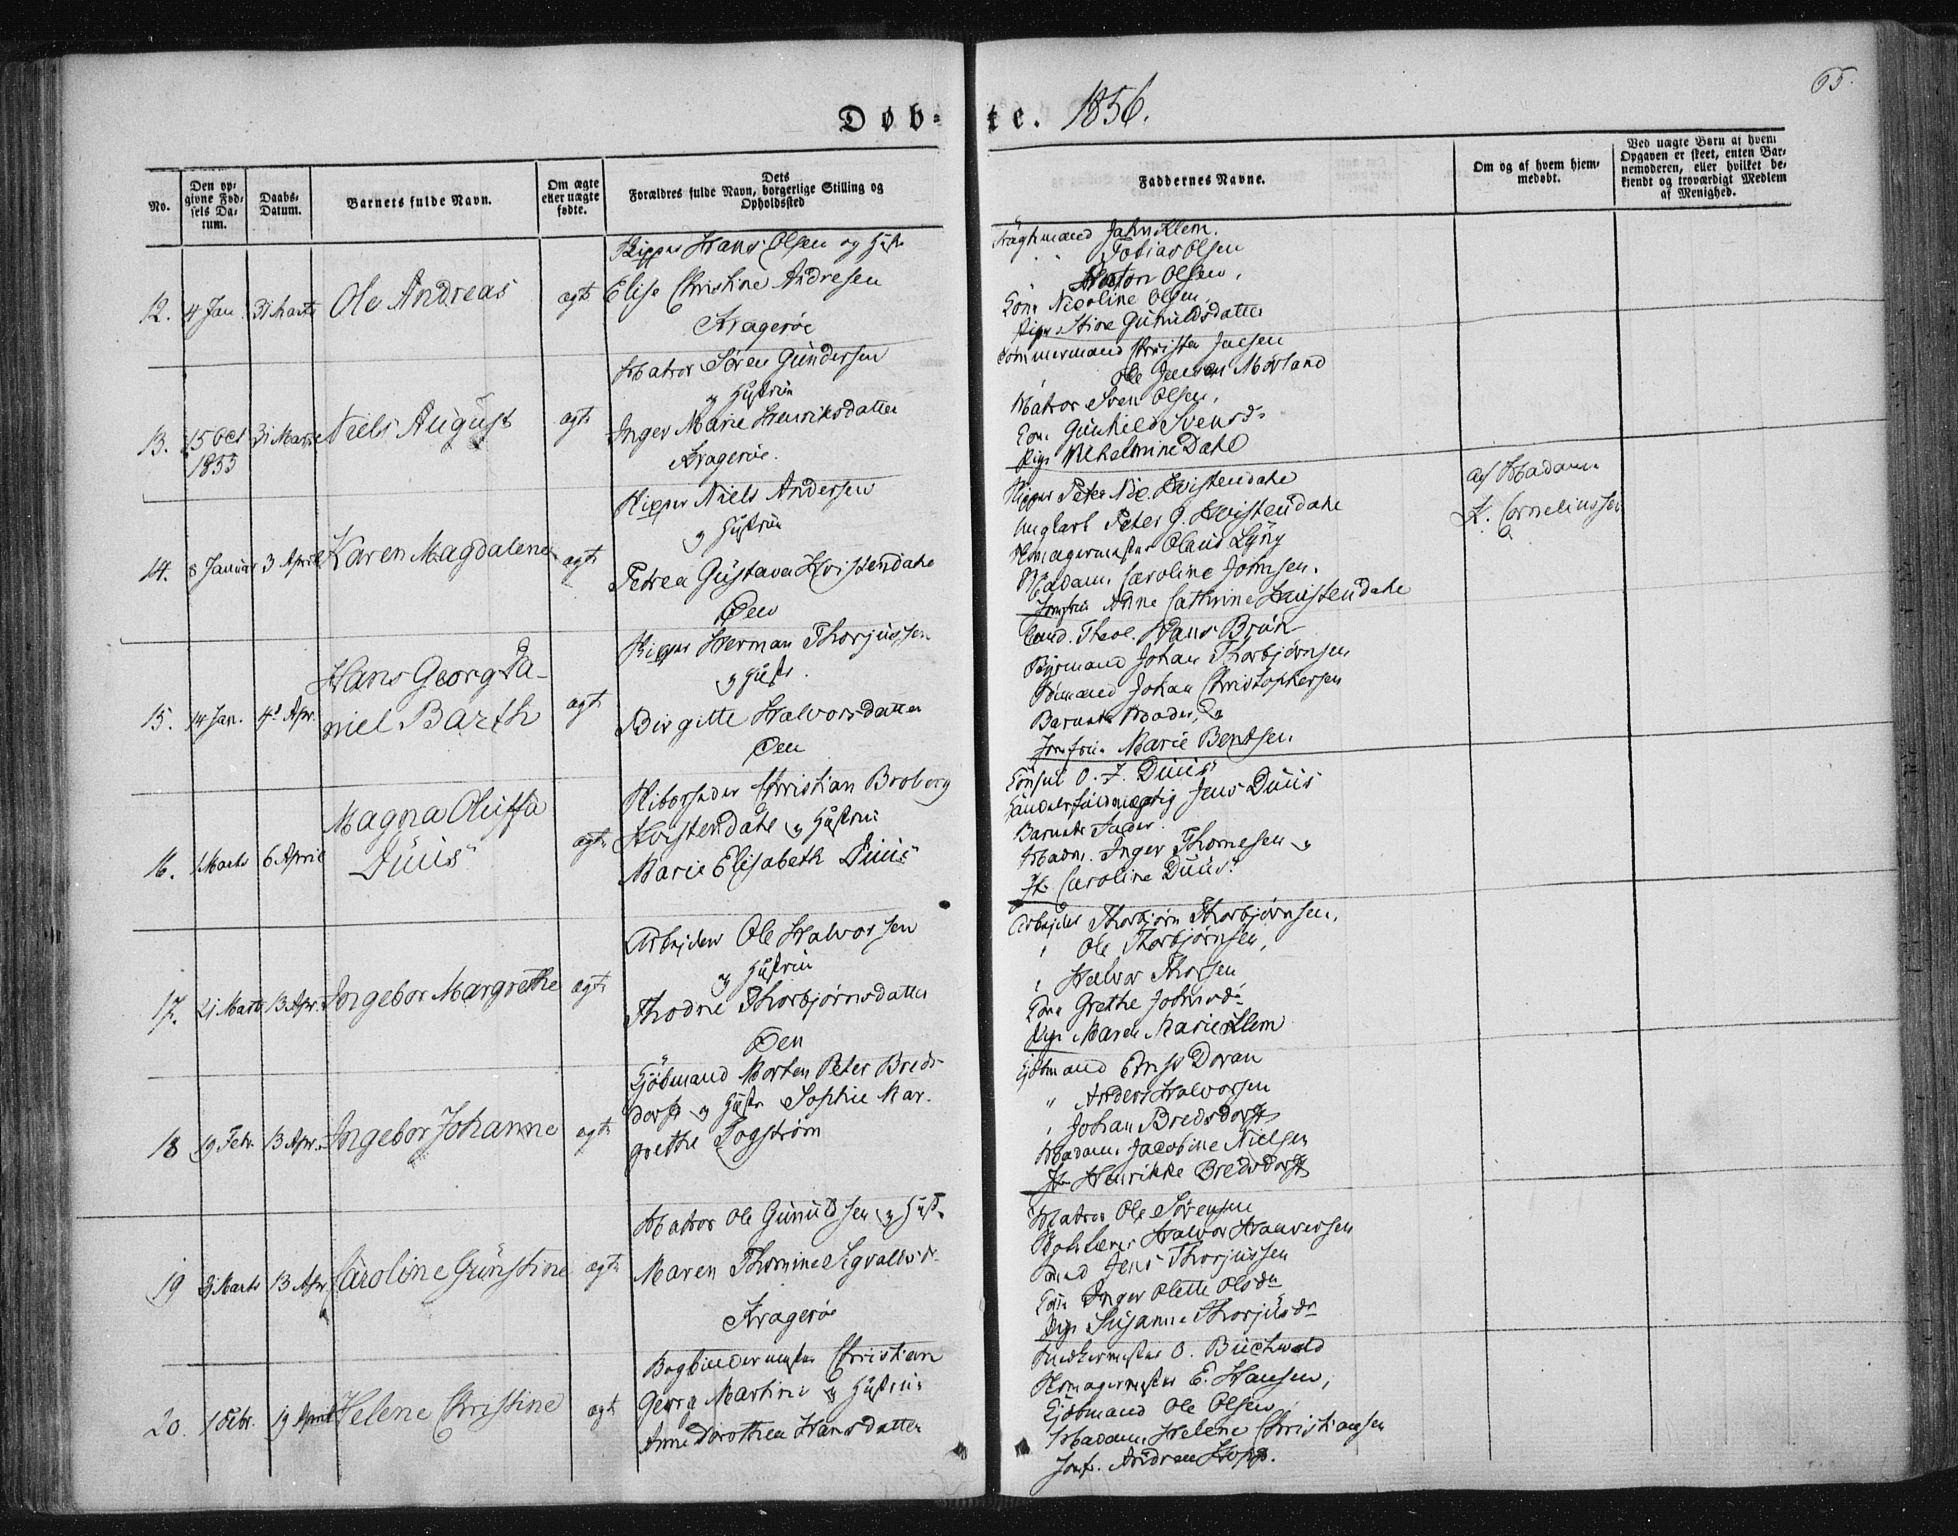 65.
Døb-te. 1856.
No.
Den opgivne Fødsels Datum.
Daabs-Datum.
Barnets fulde Navn.
Om ægte eller uægte fødte.
Dets Forældres fulde Navn, borgerlige Stilling og Opholdssted
Faddernes Navne.
Om og af hvem hjemmedøbt.
Ved uægte Børn af hvem Opgaven er skeet, enten Barnemoderen, eller hvilket bekjendt og troværdigt Medlem af Menighed.
12. 4 Jan. 31 Marts Ole Andreas ægte
Skipper Hans Olsen og Hustr
Elise Christine Andresen
Kragerøe
John Klem.
" Tobias Olsen
Morton Olsen,
Kone Nicoline Olsen,
Pige Stine Gunuldsdatter
13. 15 Oct 1855 31 Marts Niels August ægte
Matros Søren Gundersen
og Hustrue
Inger Marie Henriksdatter
Kragerøe.
Tømmermand Christen Jacsen
Ole Jensen Mørland
Matros Sven Olsen,
Kone Gunhild Svensdr
Pige Vilhelmine Dahl
14. 8 Januar 3 April Karen Magdalene ægte
Skipper Niels Andersen
og Hustrue
Petrea Gustava Kvistendahl
Øen
Skipper Peter Nic. Kvistendahl
Ungkarl Peter G. Kvistendahl
Skomagermester Olaus Lyng
Madam Caroline Johnsen.
Jomfru Anne Cathrine Kvistendahl
af Madam
K. Corneliussen
15. 14 Jan. 4de Apr. Hans Georg Da-
niel Barth ægte
Skipper Herman Thorjussen
og Hustr.
Birgitte Halvorsdatter
Øen
Cand. Theol. Hans Brun
Styrmand Johan Thorbjørnsen
Sømand Johan Christophersen
Barnets Moder,
Jomfrue Marie Bentsen.
16. 1 Marts 6 April Magna Oluffa
Duus ægte
Skibsreder Christian Broberg
Kvistendahl og Hustrue
Marie Elisabeth Duus
Consul O. J. Duus
Handelsfuldmægtig Jens Duus
Barnets Fader.
Madm. Inger Thomesen og
Jfr Caroline Duus.
17. 21 Marts 13 Apr. Ingebor Margrethe ægte
Arbejder Ole Halvorsen
og Hustrue
Thodne Thorbjørnsdatter
Øen
Arbejder Thorbjørn Thorbjørnsen,
" Ole Thorbjørnsen,
" Halvor Thorsen
Kone Grethe Johnsdr
Pige Maren Marie Klem
18 19 Febr. 13 Apr. Ingebor Johanne ægte
Kjøbmand Morten Peter Breds-
dorff og Hustr Sophie Mar-
grethe Fogstrøm
Kjøbmand Ernst Doran
" Anders Halvorsen
" Johan Bredsdorff
Madam Jacobine Nielsen
Jfr Henrikke Bredsdorff
19 3 Marts 13 Apr. Caroline Gunstine ægte
Matros Ole Gunuldsen og Hustr
Maren Thomine Sigvaldsdr
Kragerøe
Matros Ole Sørensen
Halvor Halvorsen
Jens Thorjussen
Kone Inger Olette Olsdr
Pige Susanne Thorjusdr
20. 1 Febr. 19 April Helene Christine ægte
Bogbindermester Christian
Georg Martini og Hustrue
Anne Dorothea Hansdatter
Snedkermester O. Buchwald
Skomagermester E. Hansen,
Kjøbmand Ole Olsen,
Madam Helene Christiansen
Jomf. Andrea Kopp.